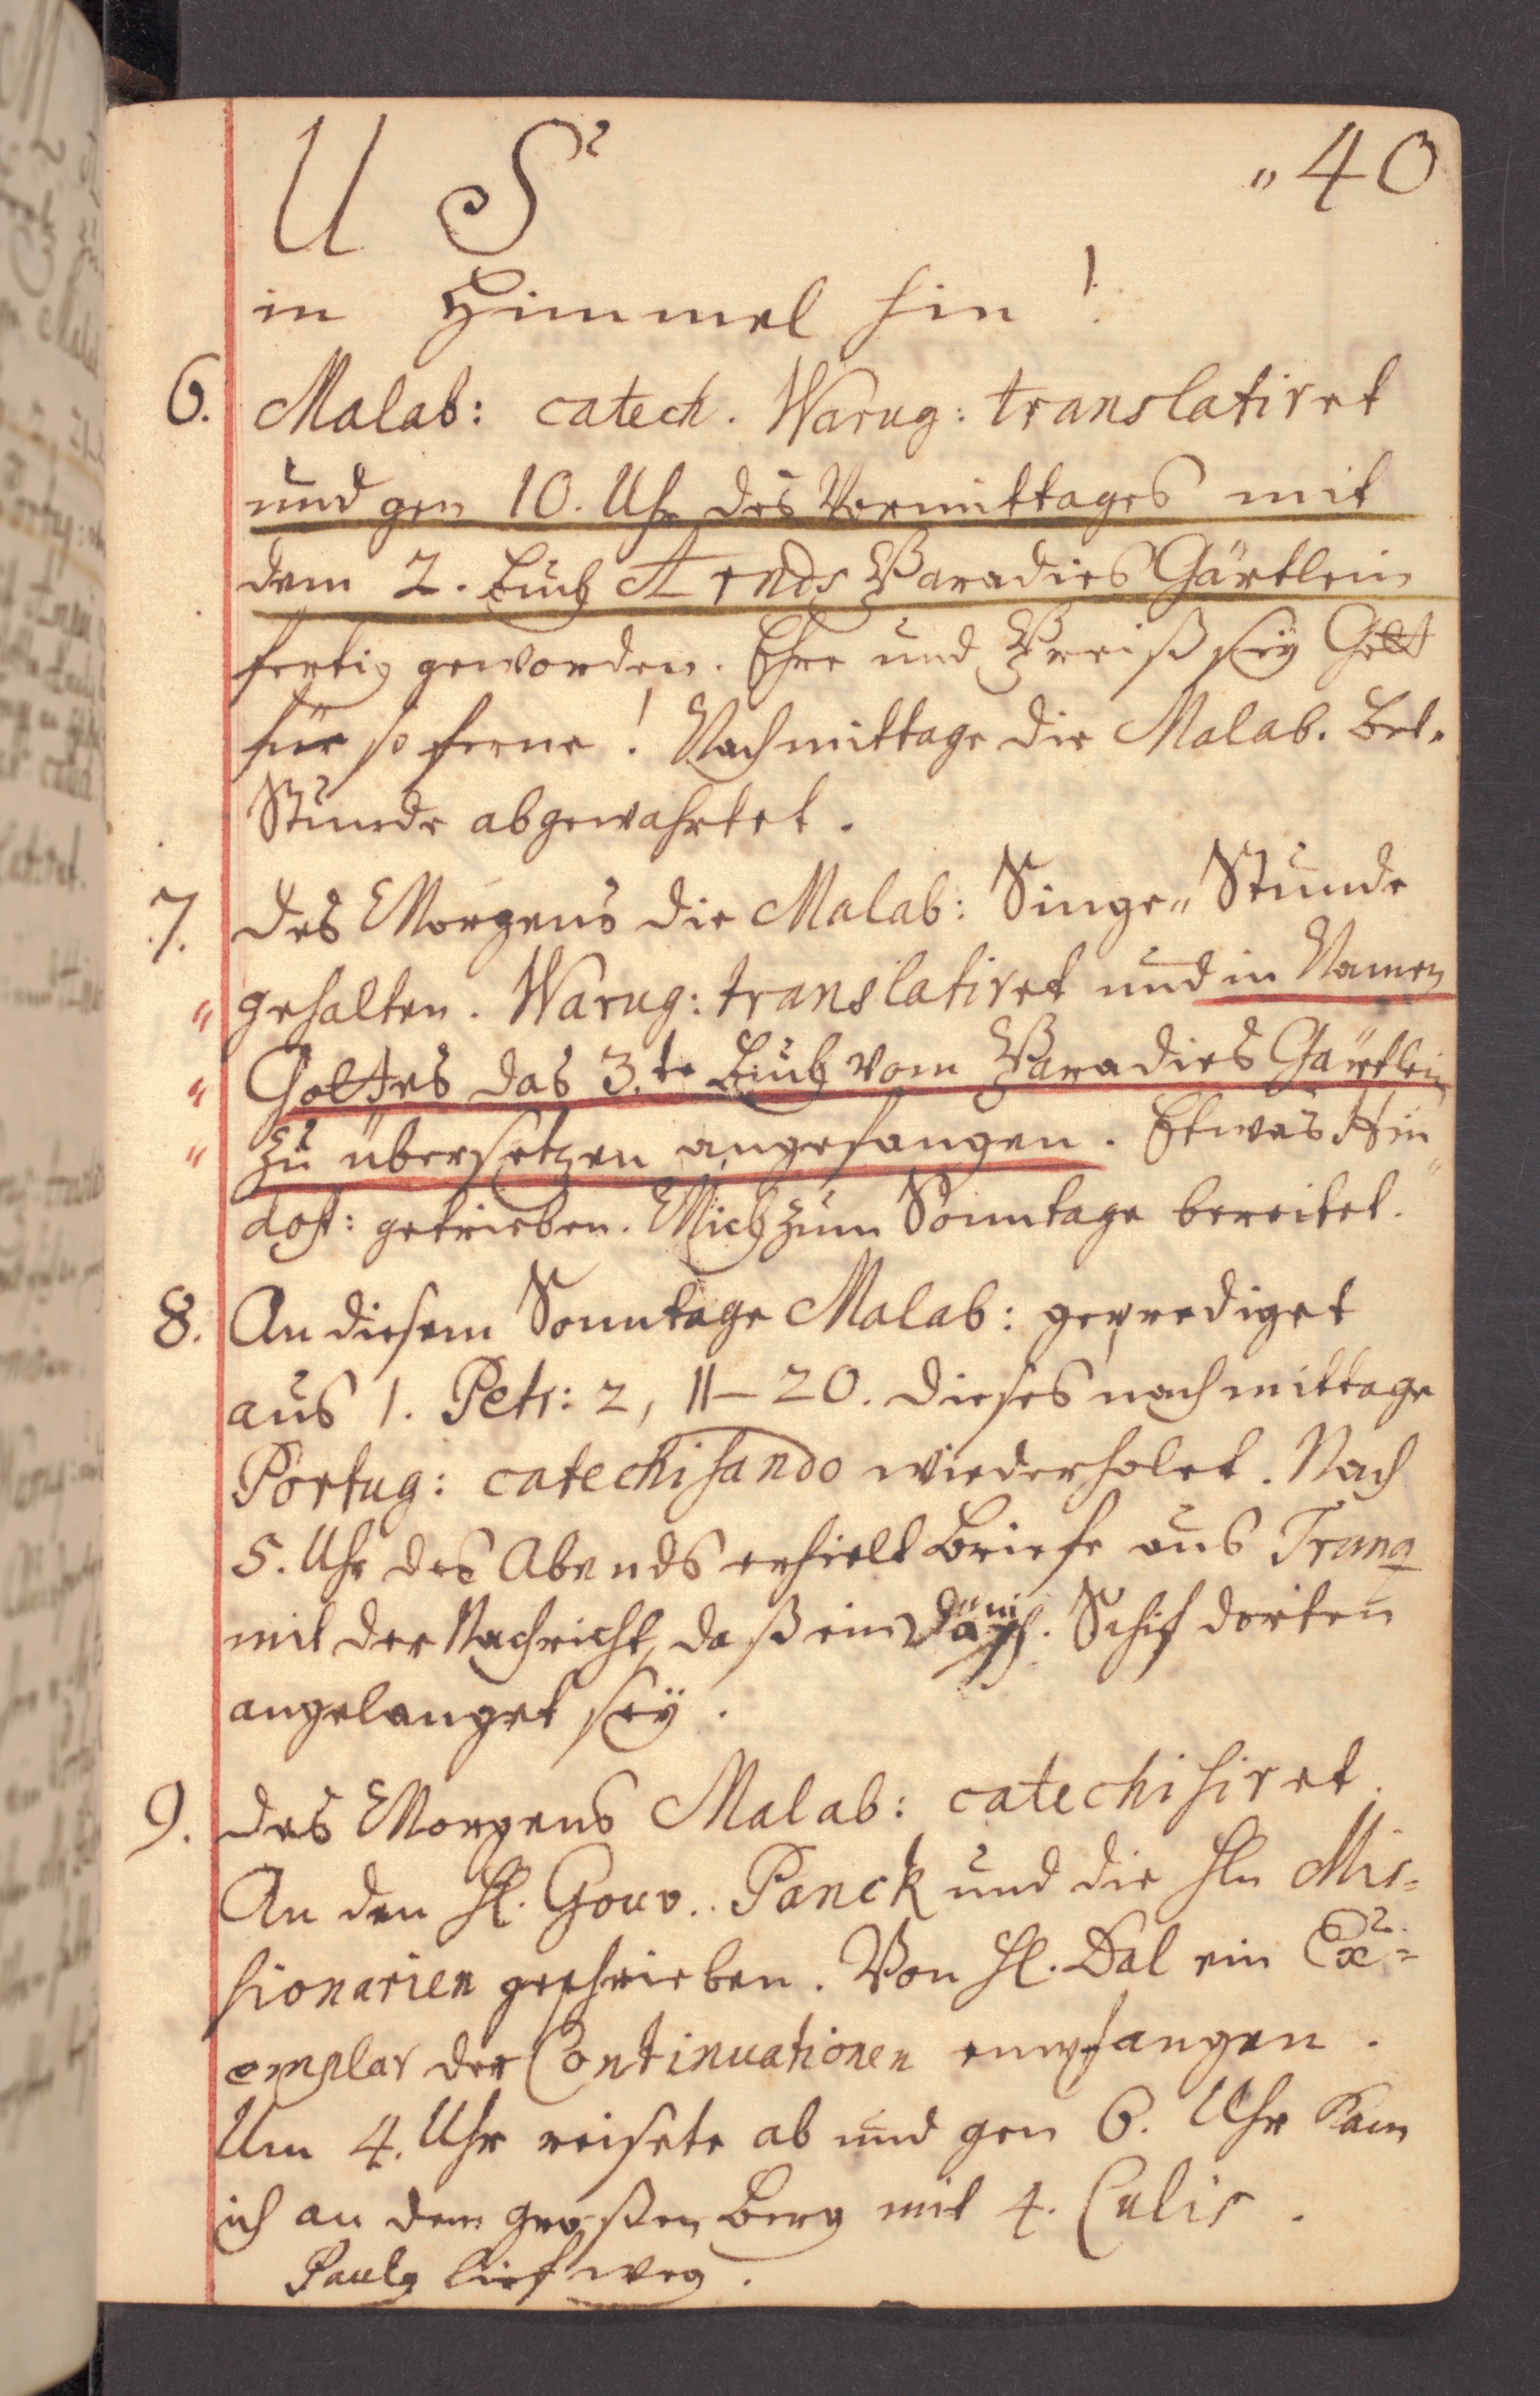 U S
„40
in Himmel hin!
6. Malab: catech. Warug: translatiret
und gen 10. Uhr des Vormittages mit
dem 2. Buch Arnds Paradies Gärtlein
fertig geworden. Ehre und Preiß seÿ Gott
für so ferne! Nachmittage die Malab. Bet-
Stunde abgewahrtet.
7. Des Morgens die Malab: Singe„ Stunde
„ gehalten. Warug: translatiret und in Namen
„ Gottes das 3.te Buch vom Paradies Gärtlein
„ zu übersetzen angefangen. Etwas Hin„
dost: getrieben. Mich zum Sonntage bereitet.
8. An diesem Sonntage Malab: geprediget
aus 1. Petr: 2, 11–20. dieses nachmittage
Portug: catechisando wiederholet. Nach
5. Uhr des Abends erhielt Briefe aus Tranq
mit der Nachricht, daß ein Dänisch. Schif dorten
angelanget seÿ.
9. Des Morgens Malab: catechisiret.
An den H. Gouv.. Panck und die Hn Mis=
sionarien geschrieben. Von H. Dal ein Ex=
emplar der Continuationen empfangen.
Um 4. Uhr reisete ab und gen 6. Uhr kam
ich an dem großen Berg mit 4. Culis.
Paulo lief weg.